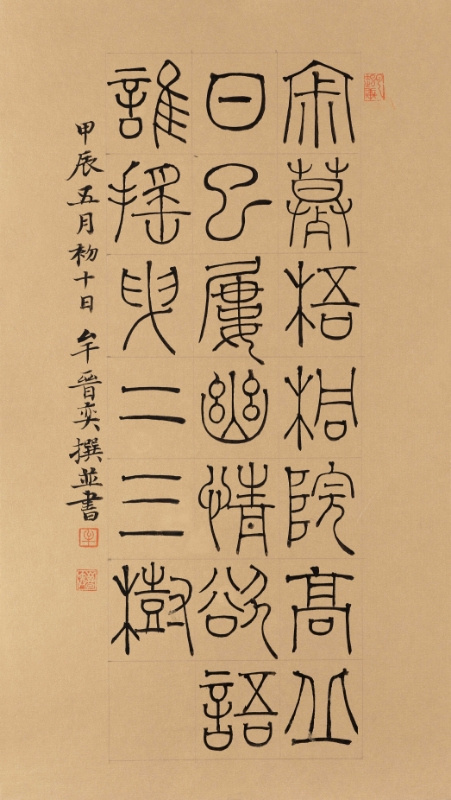 余暮梧桐院高丘
日已屢幽情欲語
誰搖曳二三樹
甲辰五月初十日 牟晉奕撰並書